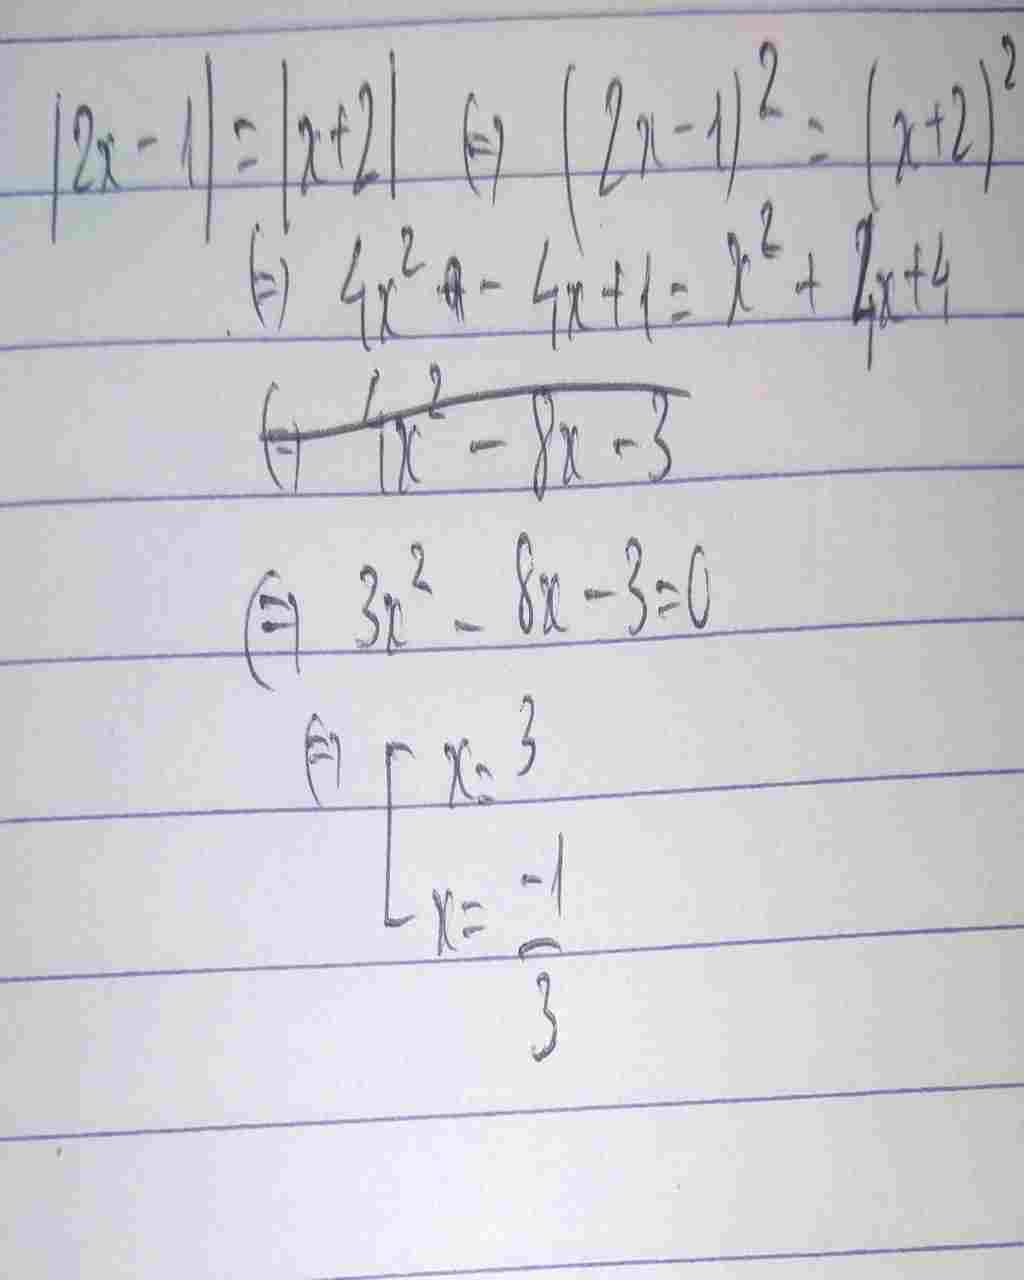 |2x - 1| = |x+2| ⇔ (2x - 1)² = (x+2)²
⇔ 4x² - 4x+1 = x² + 4x+4
⇔ x² - 8x - 3
⇔ 3x² - 8x - 3=0
⇔ [ x = 3
x = -1/3